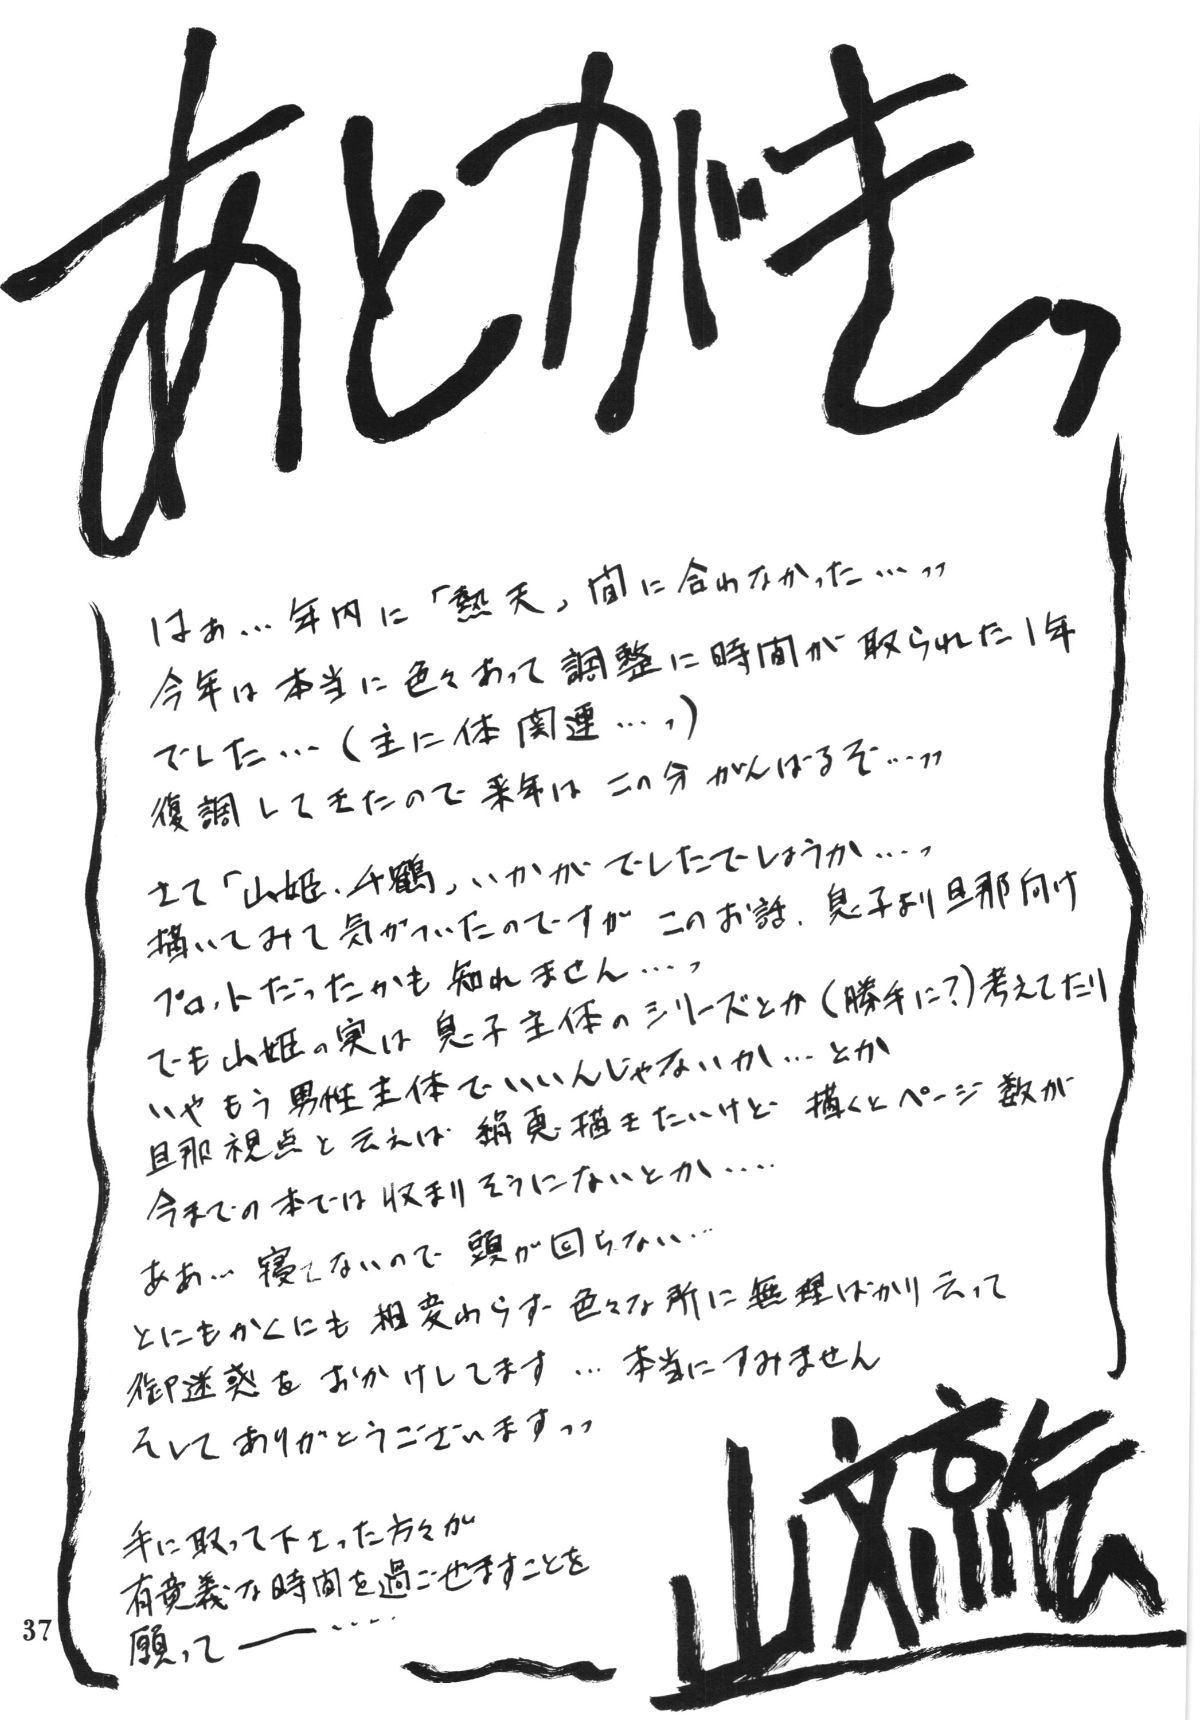 あとがきっ
はぁ…年内に「熱天」間に合わなかった…ッッ
今年は本当に色々あって調整に時間が取られた1年
でした…(主に体関連…ッ)
復調してきたので来年はこの分がんばるぞ…ッッ
さて「山姫・千鶴」いかがでしたでしょうか…ッ
描いてみて気がついたのですがこのお話、息子より旦那向け
プロットだったかも知れません…っ
でも山姫の実は息子主体のシリーズとか(勝手に?)考えてたり
いやもう男性主体でいいんじゃないか…とか
旦那視点と云えば絹恵描きたいけど描くとページ数が
今までの本では収まりそうにないとか‥‥
ああ…寝てないので頭が回らない…
とにもかくにも相変わらず色々な所に無理ばかり云って
御迷惑をおかけしてます…本当にすみません
そしてありがとうございますッッ
手に取って下さった方々が
有意義な時間を過ごせますことを
願って――‥‥
山文京伝
37